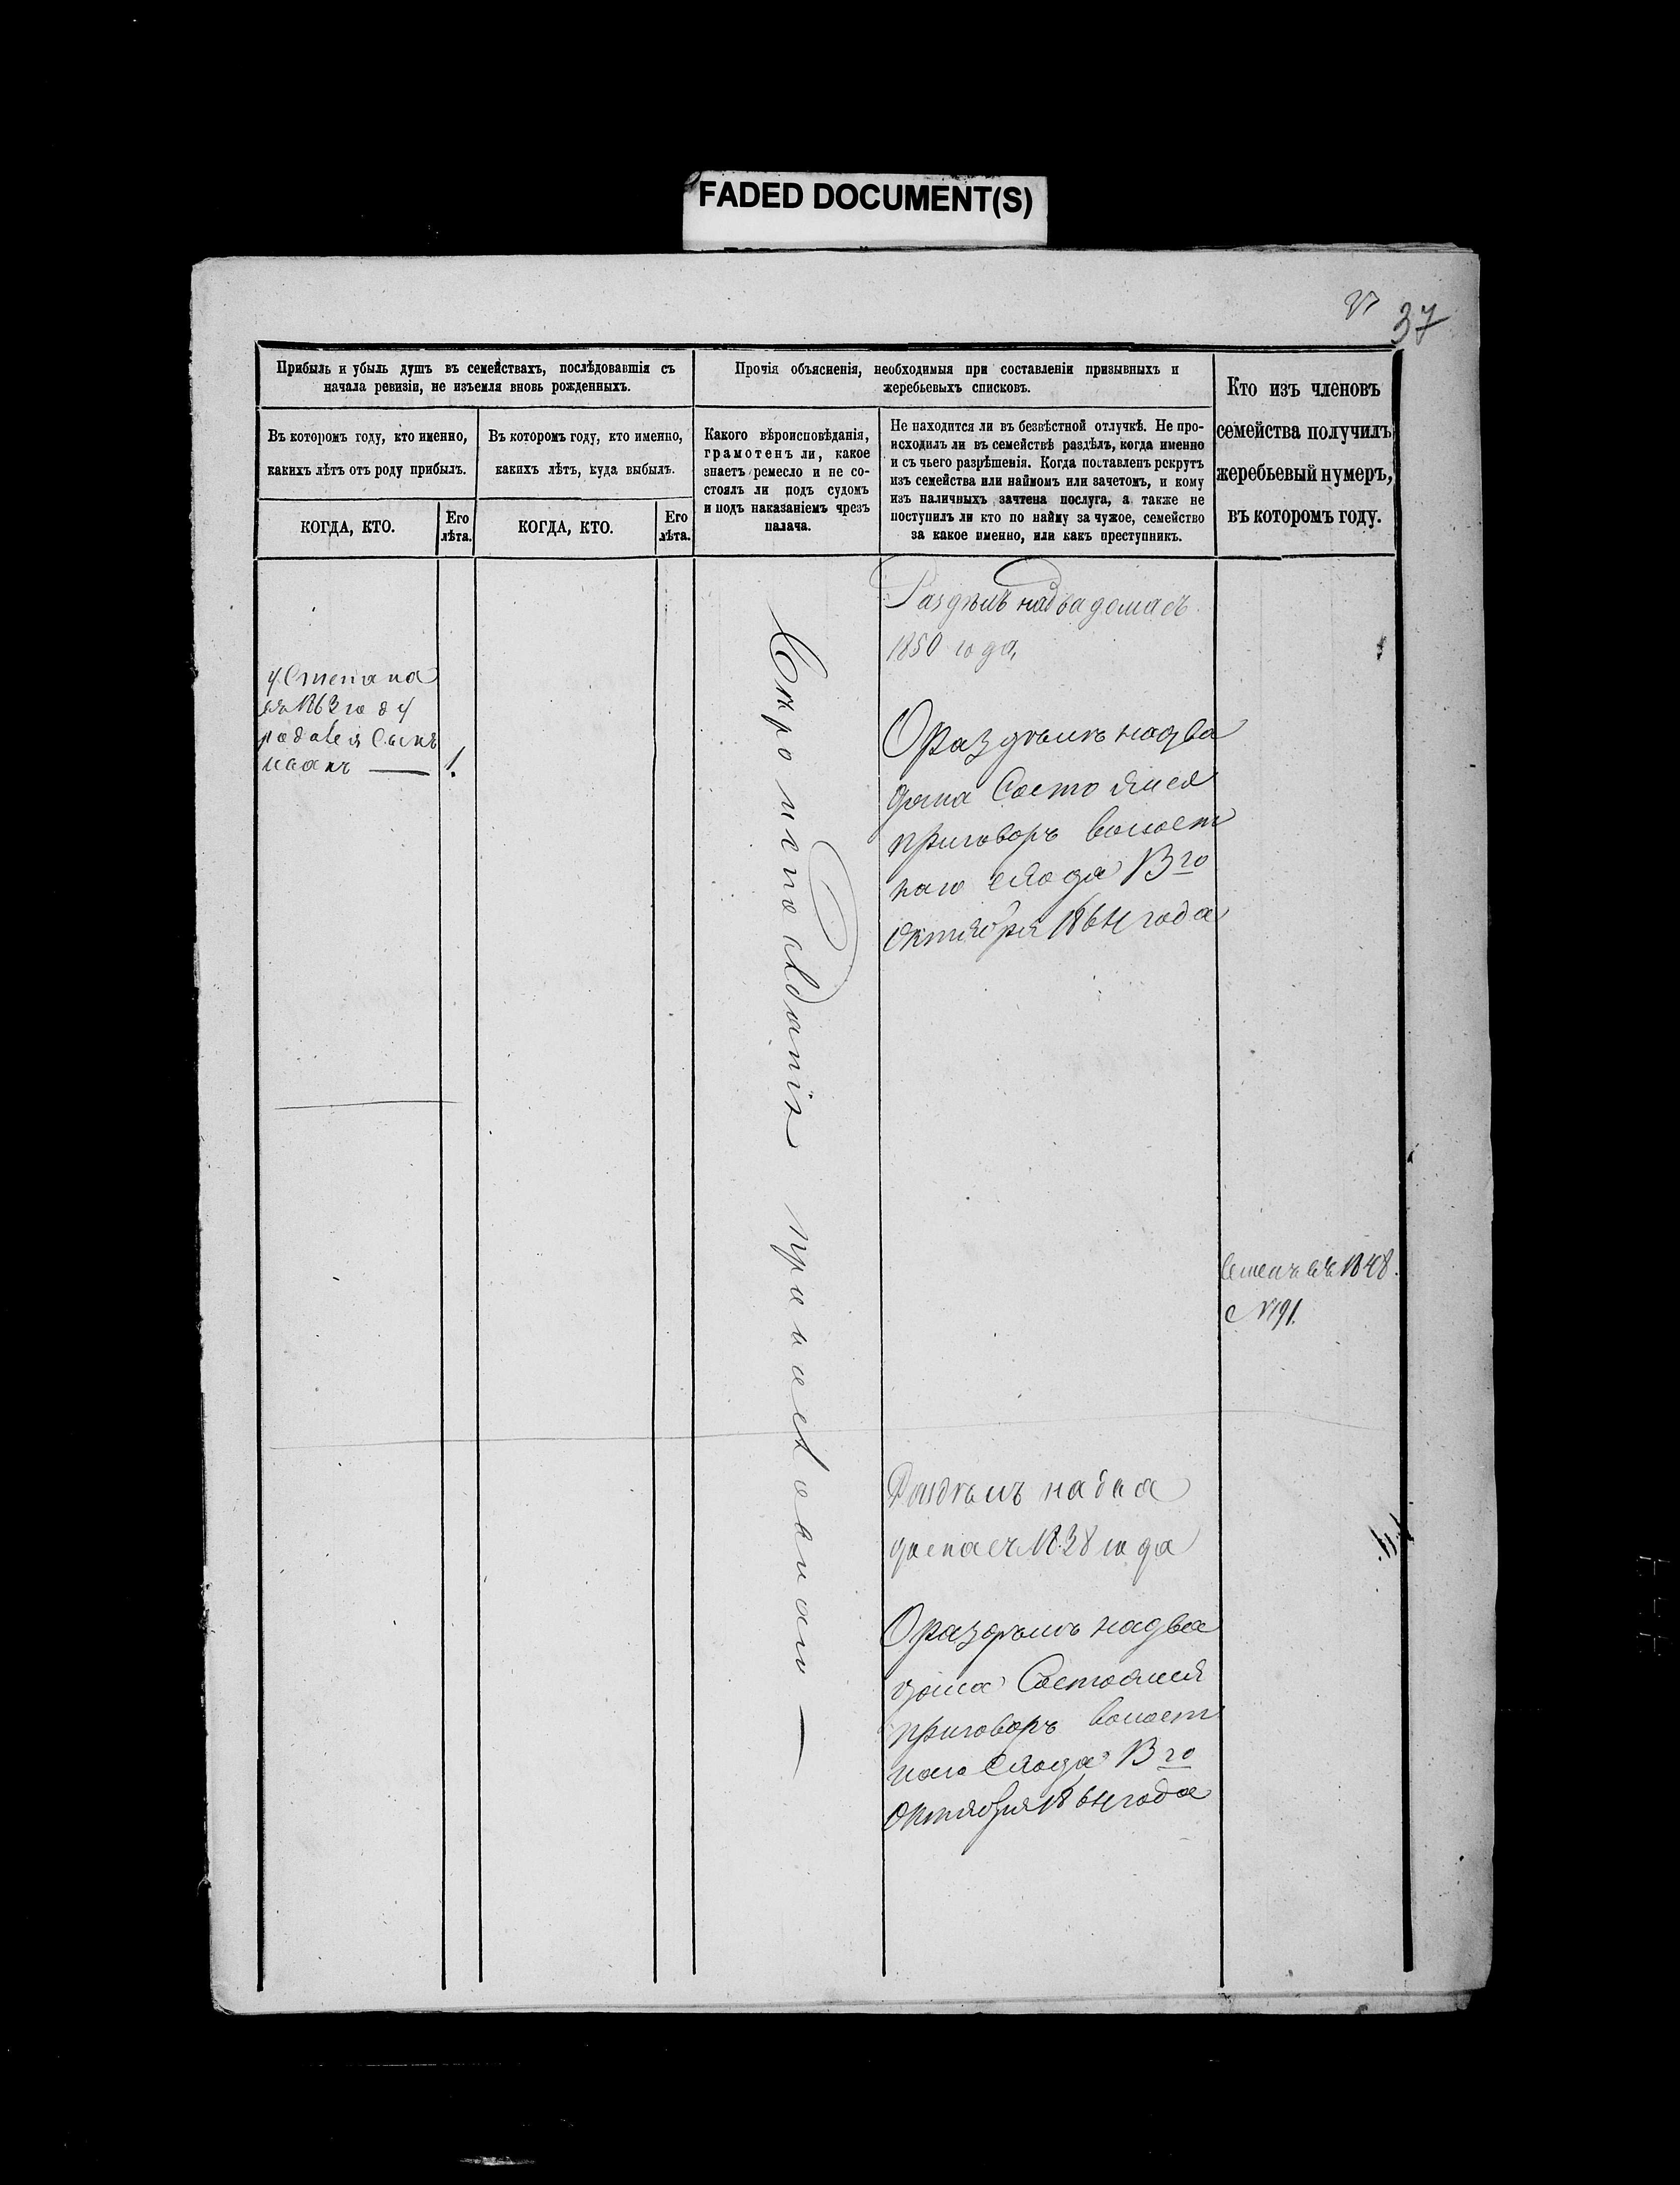 FADED DOCUMENT(S)
37
Прибыль и убыль душъ въ семействахъ, послѣдовавшія съ
начала ревизіи, не изъемля вновь рожденныхъ.
Въ которомъ году, кто именно,
какихъ лѣтъ отъ роду прибылъ.
КОГДА, КТО.
Его
лѣта.
Въ которомъ году, кто именно,
какихъ лѣтъ, куда выбылъ.
КОГДА, КТО.
Его
лѣта.
Прочія объясненія, необходимыя при составленіи призывныхъ и
жеребьевыхъ списковъ.
Какого вѣроисповѣданія,
грамотенъ ли, какое
знаетъ ремесло и не со-
стоялъ ли подъ судомъ
и подъ наказаніемъ чрезъ
палача.
Не находится ли въ безвѣстной отлучкѣ. Не про-
исходилъ ли въ семействѣ раздѣлъ, когда именно
и съ чьего разрѣшенія. Когда поставленъ рекрутъ
изъ семейства или наймомъ или зачетомъ, и кому
изъ наличныхъ зачтена послуга, а также не
поступилъ ли кто по найму за чужое, семейство
за какое именно, или какъ преступникъ.
Кто изъ членовъ
семейства получилъ
жеребьевый нумеръ,
въ которомъ году.
у Степана
въ 1863 году
родался Сынъ
Иванъ — 1.
Вѣроисповѣданія православнаго —
Раздѣлъ на два дома съ
1850 года,
О раздѣлѣ на два
дома Состоялся
приговоръ волост
наго схода 13го
октября 1864 года
Степанъ въ 1848.
№ 191.
Раздѣлъ на два
дома съ 1838 года
О раздѣлѣ на два
дома Состоялся
приговоръ волост
наго схода 13го
октября 1864 года